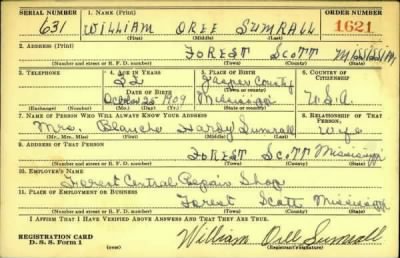 SERIAL NUMBER 1. NAME (Print) ORDER NUMBER
631 WILLIAM OREE SUMRALL 1621
(First) (Middle) (Last)
2. ADDRESS (Print)
FOREST SCOTT MISSISSIPPI
(Number and street or R. F. D. number) (Town) (County) (State)
3. TELEPHONE 4. AGE IN YEARS 5. PLACE OF BIRTH 6. COUNTRY OF CITIZENSHIP
Jasper County
DATE OF BIRTH
October 25 1909 Mississippi U.S.A.
(Exchange) (Number) (Mo.) (Day) (Yr.) (State or country)
7. NAME OF PERSON WHO WILL ALWAYS KNOW YOUR ADDRESS 8. RELATIONSHIP OF THAT PERSON
Mrs. Blanche Hardy Sumrall Wife
(Mr., Mrs., Miss) (First) (Middle) (Last)
9. ADDRESS OF THAT PERSON
FOREST SCOTT Mississippi
(Number and street or R. F. D. number) (Town) (County) (State)
10. EMPLOYER'S NAME
Forest Central Repair Shop
11. PLACE OF EMPLOYMENT OR BUSINESS
Forest Scott Mississippi
(Number and street or R. F. D. number) (Town) (County) (State)
I AFFIRM THAT I HAVE VERIFIED ABOVE ANSWERS AND THAT THEY ARE TRUE.
REGISTRATION CARD
D. S. S. Form 1 William Oree Sumrall
(Registrant's signature)